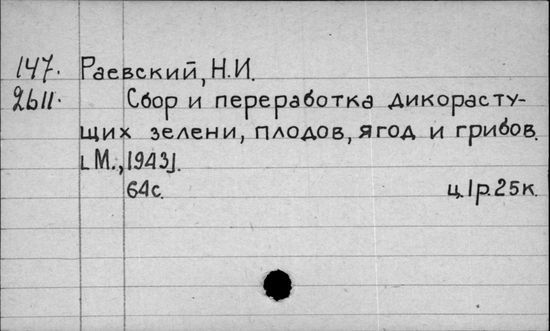 147. Раевский, Н.И.
2611. Сбор и переработка дикорасту-
щих зелени, плодов, ягод и грибов.
[М., 1943].
64с. ц. 1р. 25к.